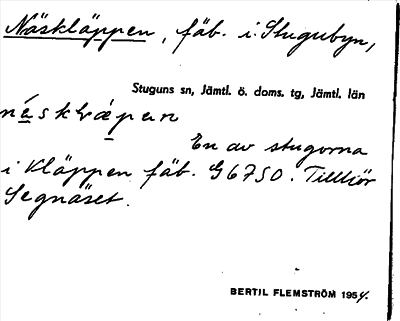 Näskläppen, fäb. i Stugubyn,
Stuguns sn, Jämtl. ö. doms. tg, Jämtl. län
En av stugorna
i Kläppen fäb. G6750. Tillhör
Segnäset.
BERTIL FLEMSTRÖM 1954.